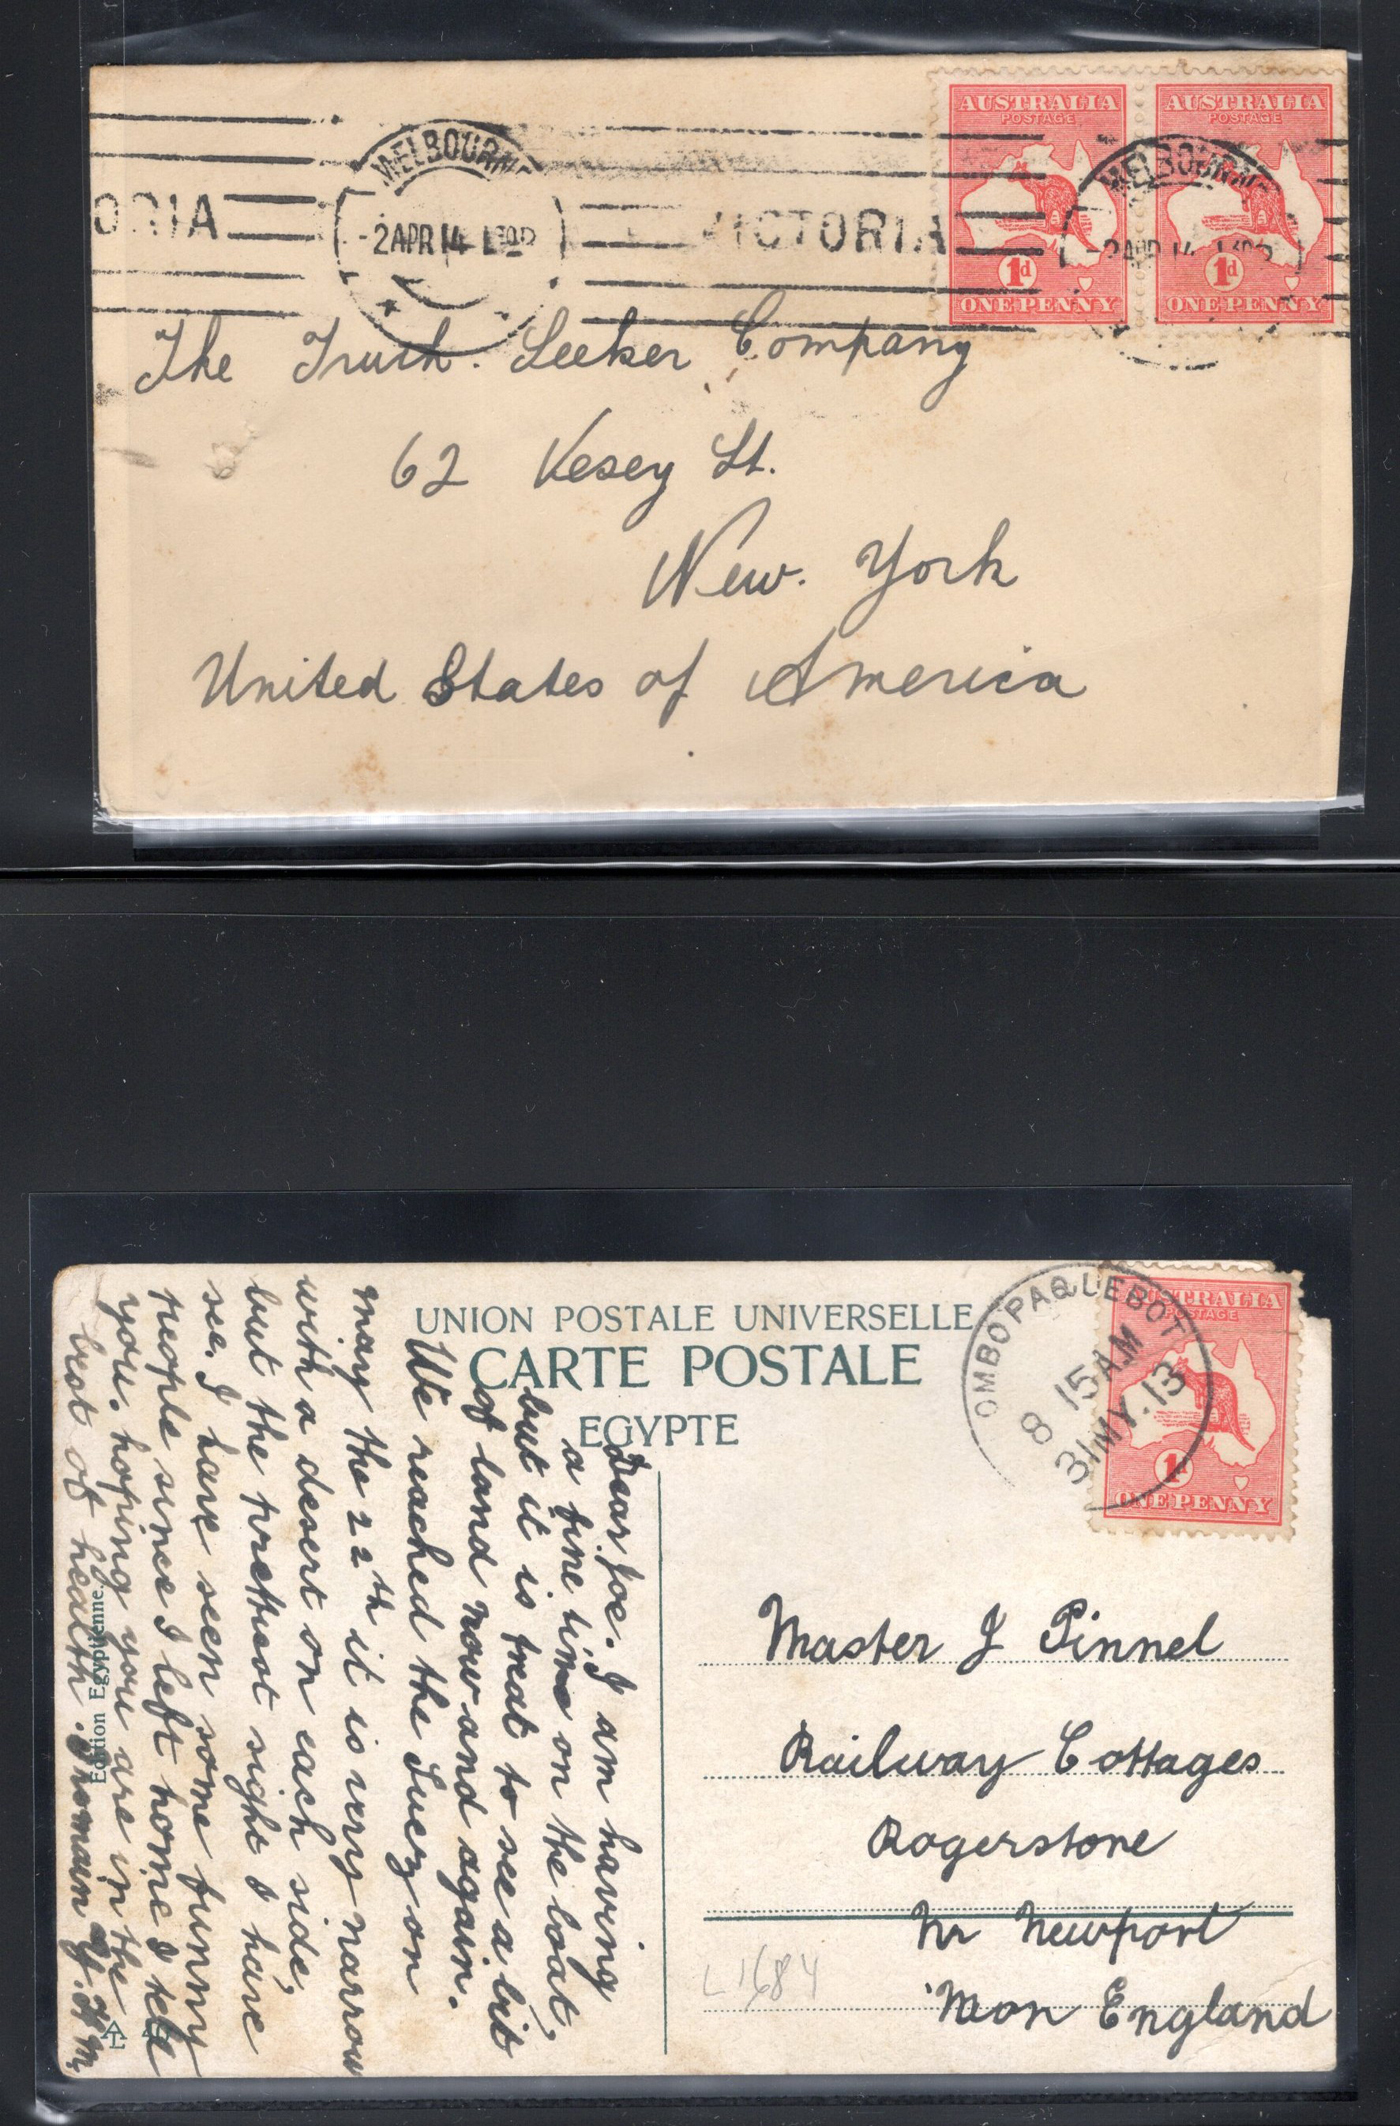 AUSTRALIA
POSTAGE
1d
ONE PENNY
AUSTRALIA
POSTAGE
1d
ONE PENNY
ORIA
MELBOURNE
-2APR14
VICTORIA
MELBOURNE
The Truth. Seeker Company
62 Vesey St.
New. York
United States of America
UNION POSTALE UNIVERSELLE
CARTE POSTALE
EGYPTE
OMBO PAQUEBOT
8 15AM
31MY.13
AUSTRALIA
POSTAGE
1d
ONE PENNY
Dear Joe. I am having
a fine time on the boat,
but it is treat to see a bit
of land now and again.
We reached the Suez on
may the 22th it is very narrow
with a desert on each side,
but the pretiest sight I have
see. I have seen some funny
people since I left home I tell
you. hoping you are in the
best of health.
Edition Egyptienne.
Master J Pinnel
Railway Cottages
Rogerstone
Nr Newport
Mon England
L1684